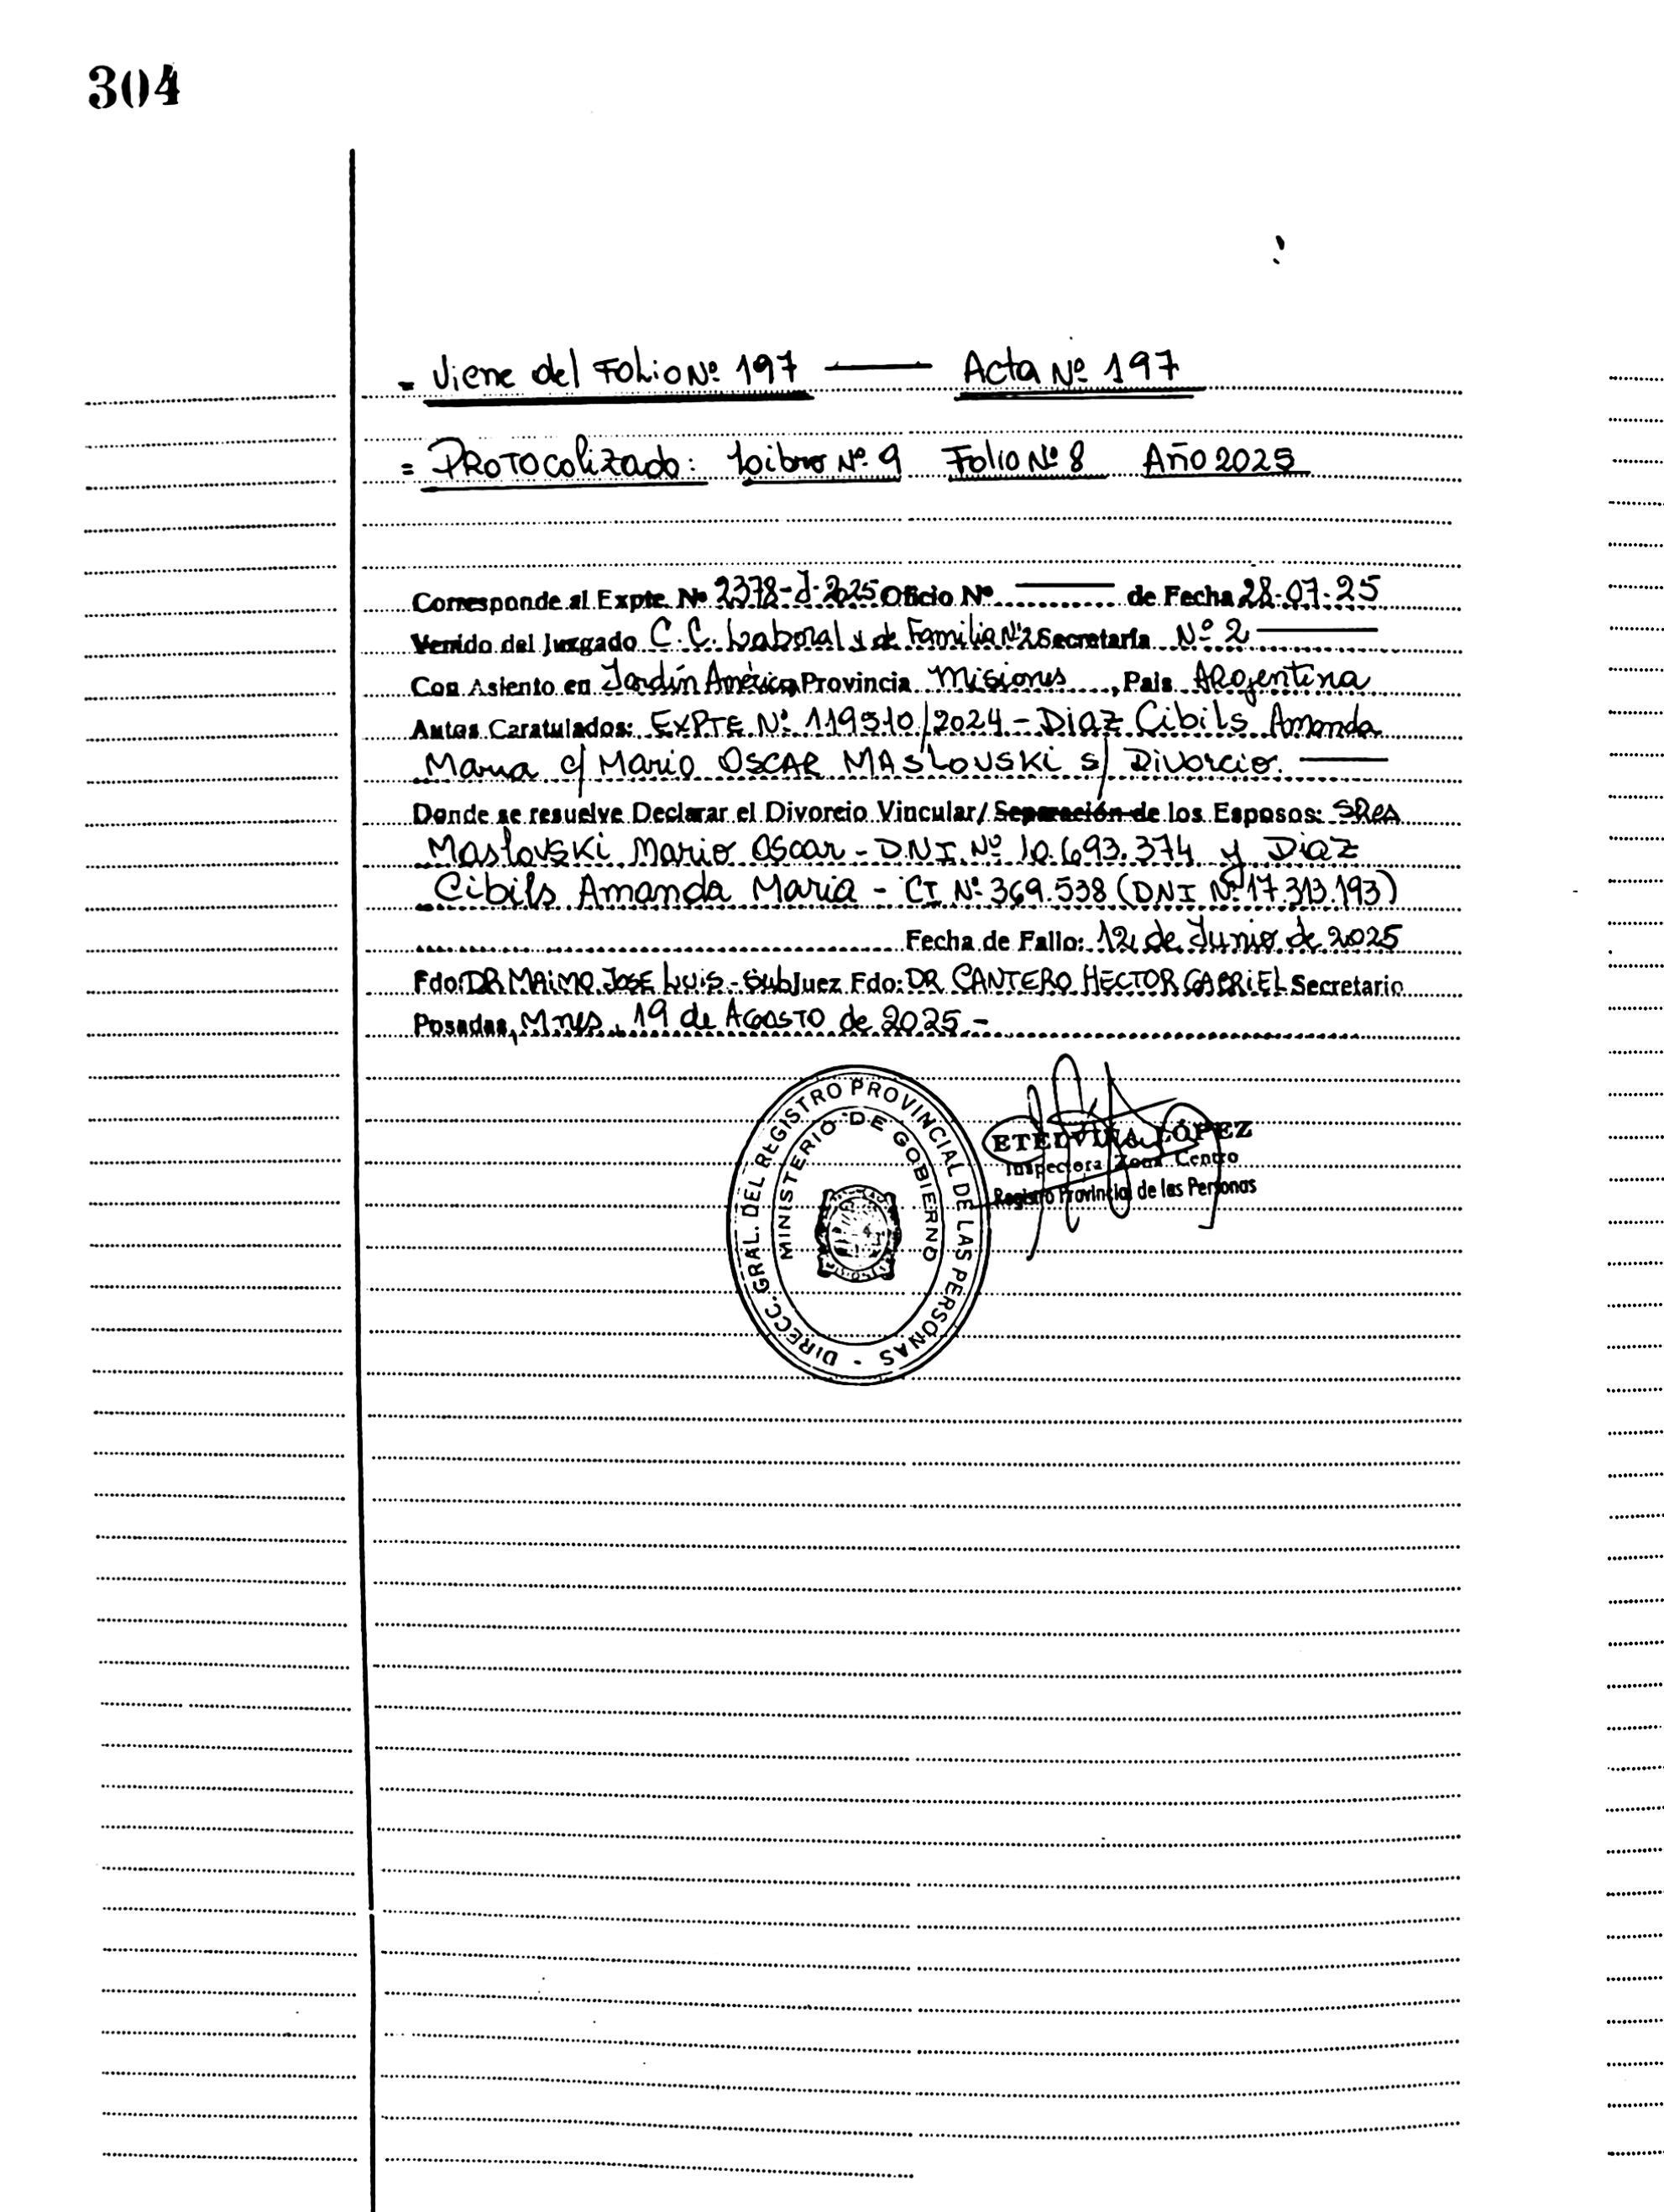 304
= Viene del Folio Nº 197 —— Acta Nº 197
= Protocolizado: Libro Nº 9 Folio Nº 8 Año 2025
Corresponde al Expte. Nº 2378-J-2025 Oficio Nº —— de Fecha 28-07-25
Venido del Juzgado C.C. Laboral y de Familia Nº2 Secretaría Nº 2 ——
Con Asiento en Jardín América, Provincia Misiones, Pais Argentina
Autos Caratulados: EXPTE Nº 119510/2024 - Diaz Cibils Amanda
Maria c/ Mario OSCAR MASLOVSKI s/ Divorcio. ——
Donde se resuelve Declarar el Divorcio Vincular/ Separación de los Esposos: SRes
Maslovski Mario Oscar - D.N.I. Nº 10.693.374 y Diaz
Cibils Amanda Maria - CI Nº 369.538 (DNI Nº 17.313.193)
Fecha de Fallo: 12 de Junio de 2025
Fdo: DR MAIMO JOSE LUIS - Sub Juez Fdo: DR CANTERO HECTOR GABRIEL Secretario
Posadas, Mnes, 19 de AGOSTO de 2025 -
DIRECC. GRAL. DEL REGISTRO PROVINCIAL DE LAS PERSONAS -
MINISTERIO DE GOBIERNO
ETELVINA LÓPEZ
Inspectora Zona Centro
Registro Provincial de las Personas